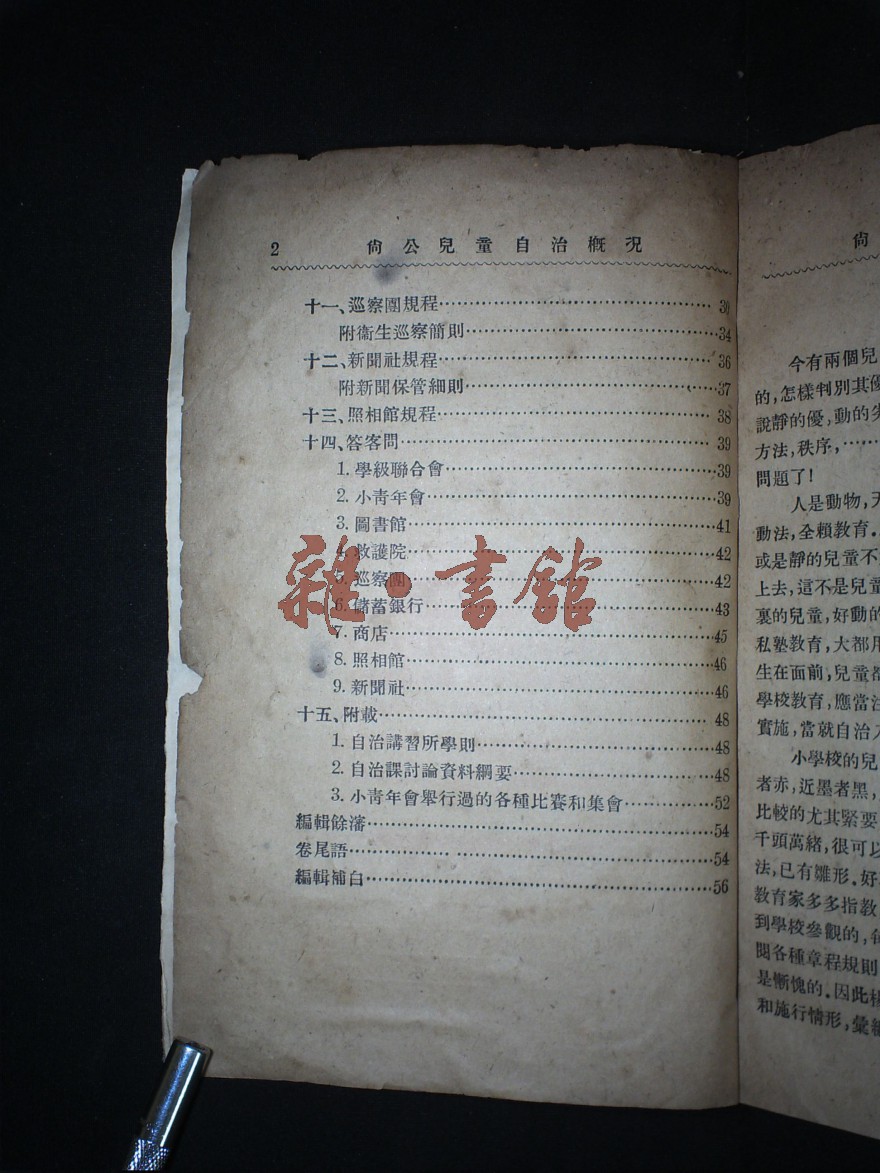 2 尙公兒童自治槪況
十一、巡察團規程 30
附衞生巡察簡則 34
十二、新聞社規程 36
附新聞保管細則 37
十三、照相館規程 38
十四、答客問 39
1. 學級聯合會 39
2. 小靑年會 39
3. 圖書館 41
4. 救護院 42
5. 巡察團 42
6. 儲蓄銀行 43
7. 商店 45
8. 照相館 46
9. 新聞社 46
十五、附載 48
1. 自治講習所學則 48
2. 自治課討論資料綱要 48
3. 小靑年會舉行過的各種比賽和集會 52
編輯餘瀋 54
卷尾語 54
編輯補白 56
雜·書館
尙
今有兩個兒
的,怎樣判別其優
說靜的優,動的劣
方法,秩序,……
問題了!
人是動物,天
動法,全賴教育.
或是靜的兒童不
上去,這不是兒童
裏的兒童,好動的
私塾教育,大都用
生在面前,兒童都
學校教育,應當注
實施,當就自治入
小學校的兒
者赤,近墨者黑,
比較的尤其緊要
千頭萬緒,很可以
法,已有雛形.好
教育家多多指教
到學校參觀的,
閱各種章程規則
是慚愧的.因此
和施行情形,彙編